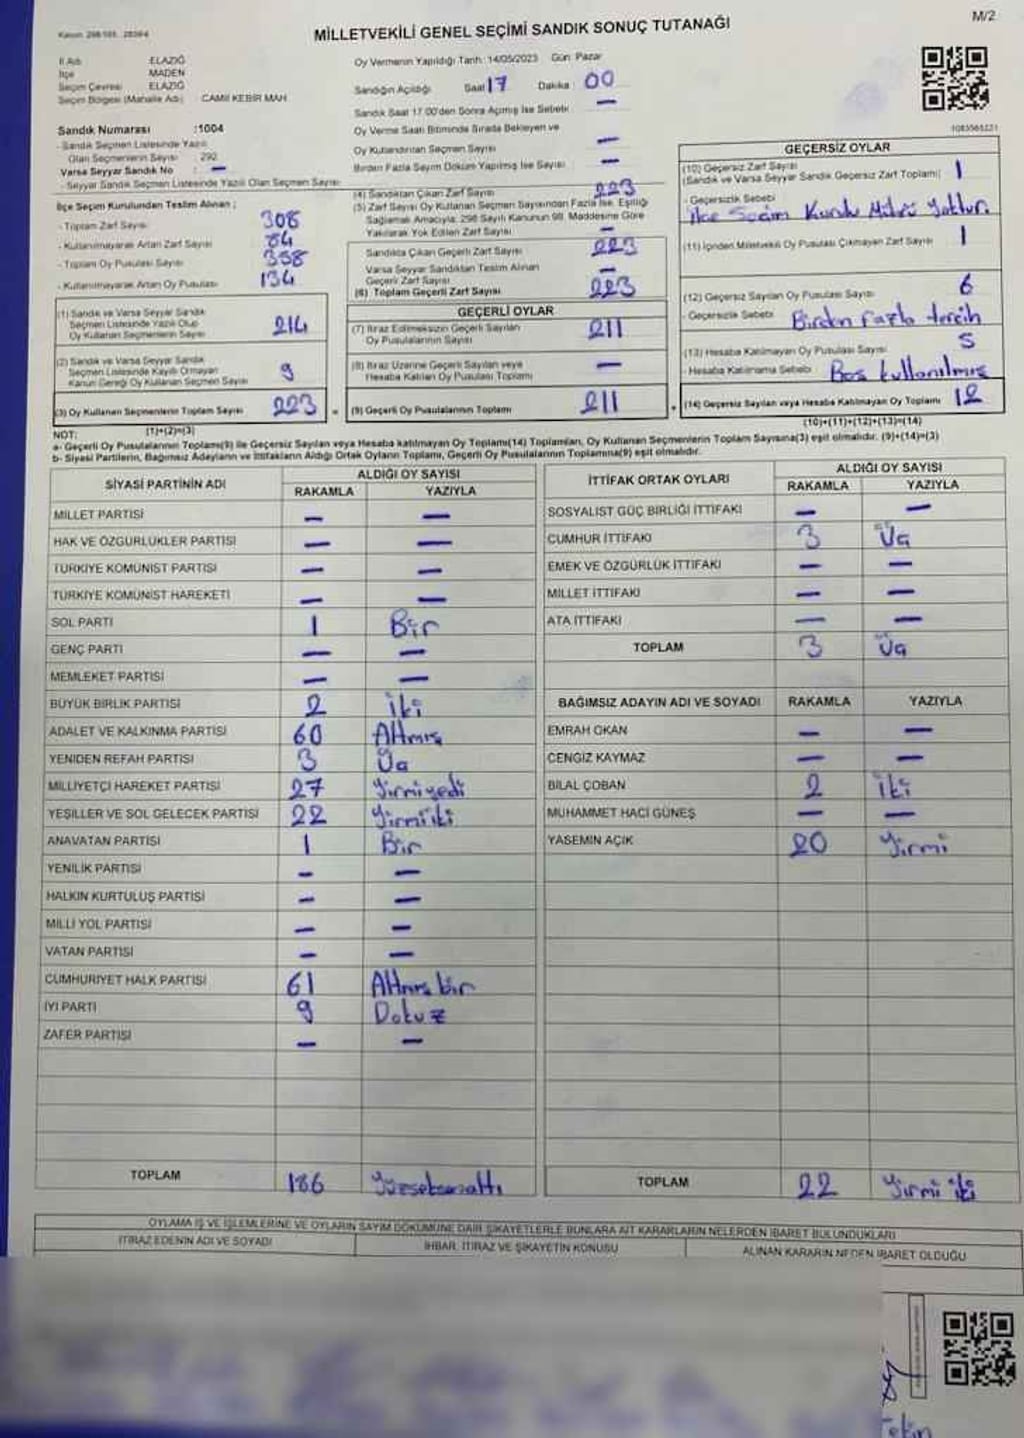 M/2
MİLLETVEKİLİ GENEL SEÇİMİ SANDIK SONUÇ TUTANAĞI
İl Adı ELAZIĞ
İlçe MADEN
Seçim Çevresi ELAZIĞ
Seçim Bölgesi (Mahalle Adı) CAMİİ KEBİR MAH
Sandık Numarası :1004
- Sandık Seçmen Listesinde Yazılı
Olan Seçmenlerin Sayısı : 292
Varsa Seyyar Sandık No : –
- Seyyar Sandık Seçmen Listesinde Yazılı Olan Seçmen Sayısı
İlçe Seçim Kurulundan Teslim Alınan ;
- Toplam Zarf Sayısı 308
- Kullanılmayarak Artan Zarf Sayısı 84
- Toplam Oy Pusulası Sayısı 358
- Kullanılmayarak Artan Oy Pusulası 134
(1) Sandık ve Varsa Seyyar Sandık
Seçmen Listesinde Yazılı Olup
Oy Kullanan Seçmenlerin Sayısı 214
(2) Sandık ve Varsa Seyyar Sandık
Seçmen Listesinde Kayıtlı Olmayan
Kanun Gereği Oy Kullanan Seçmen Sayısı 9
(3) Oy Kullanan Seçmenlerin Toplam Sayısı 223
(1)+(2)=(3)
Oy Vermenin Yapıldığı Tarih: 14/05/2023 Gün: Pazar
Sandığın Açıldığı Saat 17 Dakika : 00
Sandık Saat 17:00'den Sonra Açılmış İse Sebebi –
Oy Verme Saati Bitiminde Sırada Bekleyen ve
Oy Kullandırılan Seçmen Sayısı –
Birden Fazla Sayım Döküm Yapılmış İse Sayısı –
(4) Sandıktan Çıkan Zarf Sayısı 223
(5) Zarf Sayısı Oy Kullanan Seçmen Sayısından Fazla İse, Eşitliği
Sağlamak Amacıyla; 298 Sayılı Kanunun 98. Maddesine Göre
Yakılarak Yok Edilen Zarf Sayısı –
Sandıkta Çıkan Geçerli Zarf Sayısı 223
Varsa Seyyar Sandıktan Teslim Alınan
Geçerli Zarf Sayısı –
(6) Toplam Geçerli Zarf Sayısı 223
GEÇERLİ OYLAR
(7) İtiraz Edilmeksizin Geçerli Sayılan
Oy Pusulalarının Sayısı 211
(8) İtiraz Üzerine Geçerli Sayılan veya
Hesaba Katılan Oy Pusulası Toplamı –
(9) Geçerli Oy Pusulalarının Toplamı 211
GEÇERSİZ OYLAR
(10) Geçersiz Zarf Sayısı
(Sandık ve Varsa Seyyar Sandık Geçersiz Zarf Toplamı) 1
- Geçersizlik Sebebi
İlçe Seçim Kurulu Mührü Yoktur.
(11) İçinden Milletvekili Oy Pusulası Çıkmayan Zarf Sayısı 1
(12) Geçersiz Sayılan Oy Pusulası Sayısı 6
- Geçersizlik Sebebi Birden fazla tercih
(13) Hesaba Katılmayan Oy Pusulası Sayısı 5
- Hesaba Katılmama Sebebi Boş kullanılmış
(14) Geçersiz Sayılan veya Hesaba Katılmayan Oy Toplamı 12
(10)+(11)+(12)+(13)=(14)
NOT:
a- Geçerli Oy Pusulalarının Toplamı(9) ile Geçersiz Sayılan veya Hesaba katılmayan Oy Toplamı(14) Toplamları, Oy Kullanan Seçmenlerin Toplam Sayısına(3) eşit olmalıdır. (9)+(14)=(3)
b- Siyasi Partilerin, Bağımsız Adayların ve İttifakların Aldığı Ortak Oyların Toplamı, Geçerli Oy Pusulalarının Toplamına(9) eşit olmalıdır.
SİYASİ PARTİNİN ADI ALDIĞI OY SAYISI
RAKAMLA YAZIYLA
MİLLET PARTİSİ – –
HAK VE ÖZGÜRLÜKLER PARTİSİ – –
TÜRKİYE KOMÜNİST PARTİSİ – –
TÜRKİYE KOMÜNİST HAREKETİ – –
SOL PARTİ 1 Bir
GENÇ PARTİ – –
MEMLEKET PARTİSİ – –
BÜYÜK BİRLİK PARTİSİ 2 İki
ADALET VE KALKINMA PARTİSİ 60 Altmış
YENİDEN REFAH PARTİSİ 3 Üç
MİLLİYETÇİ HAREKET PARTİSİ 27 Yirmiyedi
YEŞİLLER VE SOL GELECEK PARTİSİ 22 Yirmiiki
ANAVATAN PARTİSİ 1 Bir
YENİLİK PARTİSİ – –
HALKIN KURTULUŞ PARTİSİ – –
MİLLİ YOL PARTİSİ – –
VATAN PARTİSİ – –
CUMHURİYET HALK PARTİSİ 61 Altmış bir
İYİ PARTİ 9 Dokuz
ZAFER PARTİSİ – –
TOPLAM 186 Yüzseksenaltı
İTTİFAK ORTAK OYLARI ALDIĞI OY SAYISI
RAKAMLA YAZIYLA
SOSYALİST GÜÇ BİRLİĞİ İTTİFAKI – –
CUMHUR İTTİFAKI 3 Üç
EMEK VE ÖZGÜRLÜK İTTİFAKI – –
MİLLET İTTİFAKI – –
ATA İTTİFAKI – –
TOPLAM 3 Üç
BAĞIMSIZ ADAYIN ADI VE SOYADI RAKAMLA YAZIYLA
EMRAH OKAN – –
CENGİZ KAYMAZ – –
BİLAL ÇOBAN 2 İki
MUHAMMET HACI GÜNEŞ – –
YASEMİN AÇIK 20 Yirmi
TOPLAM 22 Yirmi iki
OYLAMA İŞ VE İŞLEMLERİNE VE OYLARIN SAYIM DÖKÜMÜNE DAİR ŞİKAYETLERLE BUNLARA AİT KARARLARIN NELERDEN İBARET BULUNDUKLARI
İTİRAZ EDENİN ADI VE SOYADI İHBAR, İTİRAZ VE ŞİKAYETİN KONUSU ALINAN KARARIN NEDEN İBARET OLDUĞU